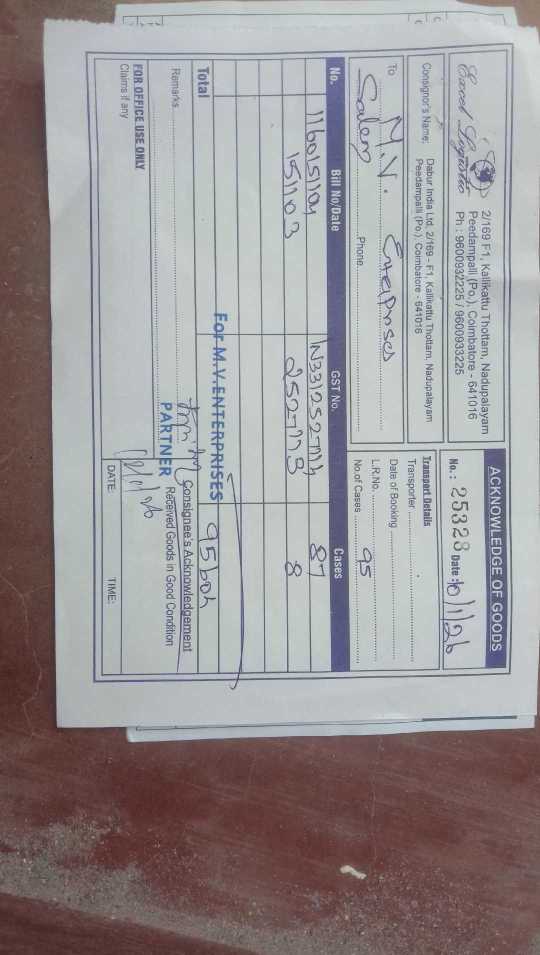 Excel Logistic
2/169 F1, Kallikattu Thottam, Nadupalayam
Peedampalli (Po.), Coimbatore - 641016
Ph : 9600932225 / 9600933225
ACKNOWLEDGE OF GOODS
No. : 25328 Date : 10/1/26
Consignor's Name: Dabur India Ltd. 2/169 - F1, Kallikattu Thottam, Nadupalayam
Peedampalli (Po.), Coimbatore - 641016
To M.V. Enterprises
Salem
Phone
Transport Details
Transporter
Date of Booking
L.R.No.
No.of Cases 95
No. Bill No/Date GST No. Cases
87
151103 8
Total 95 box
For M.V.ENTERPRISES
Remarks
PARTNER
Consignee's Acknowledgement
Received Goods in Good Condition
FOR OFFICE USE ONLY
Claims if any
DATE: TIME: